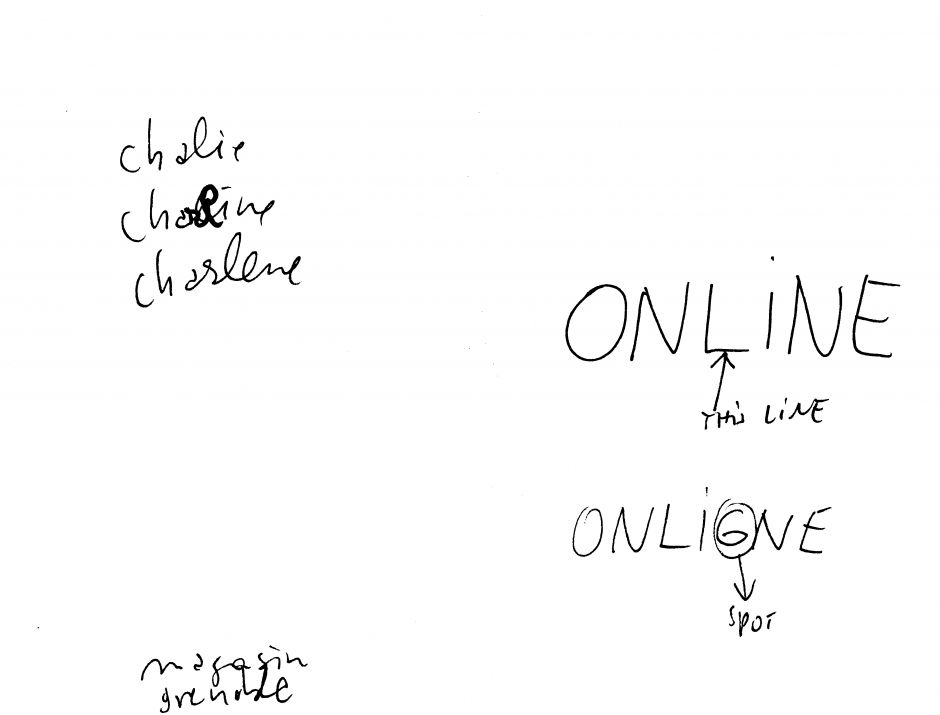 chalie
charline
charlene
ONLiNE
THiS LiNE
ONLiGNE
SPOT
magasin
grenoble